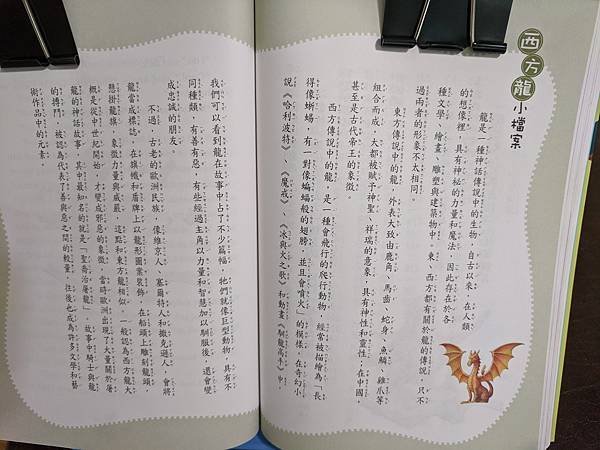 西方龍小檔案
龍是一種神話傳說中的生物，自古以來，在人類
的想像裡，具有神祕的力量和魔法，因此存在於各
種文學、繪畫、雕塑與建築物中。東、西方都有關於龍的傳說，只不
過兩者的形象不太相同。
東方傳說中的龍，外表大致由鹿角、馬齒、蛇身、魚鱗、雞爪等
組合而成，大都被賦予神聖、祥瑞的意象，具有神性和靈性；在中國，
甚至是古代帝王的象徵。
西方傳說中的龍，是一種會飛行的爬行動物，經常被描繪為「長
得像蜥蜴，有一對像蝙蝠般的翅膀，並且會噴火」的模樣，在奇幻小
說《哈利波特》、《魔戒》、《冰與火之歌》和動畫《馴龍高手》中，
我們可以看到龍在故事中占了不少篇幅，牠們就像巨型動物，具有不
同種類，有善有惡，有些經過主角以力量和智慧加以馴服後，還會變
成忠誠的朋友。
不過，古老的歐洲民族，像維京人、塞爾特人和撒克遜人，會將
龍當成標誌，在旗幟和盾牌上以龍形圖案裝飾，在船頭上雕刻龍頭，
懸掛龍旗，象徵力量與威嚴，這點和東方龍相似，一般認為西方龍大
概是從中世紀開始，才變成邪惡的象徵，當時歐洲出現了大量關於屠
龍的神話故事，其中最知名的就是「聖喬治屠龍」，故事中騎士與龍
的搏鬥，被認為代表了善與惡之間的較量，往後也成為許多文學和藝
術作品中的元素。